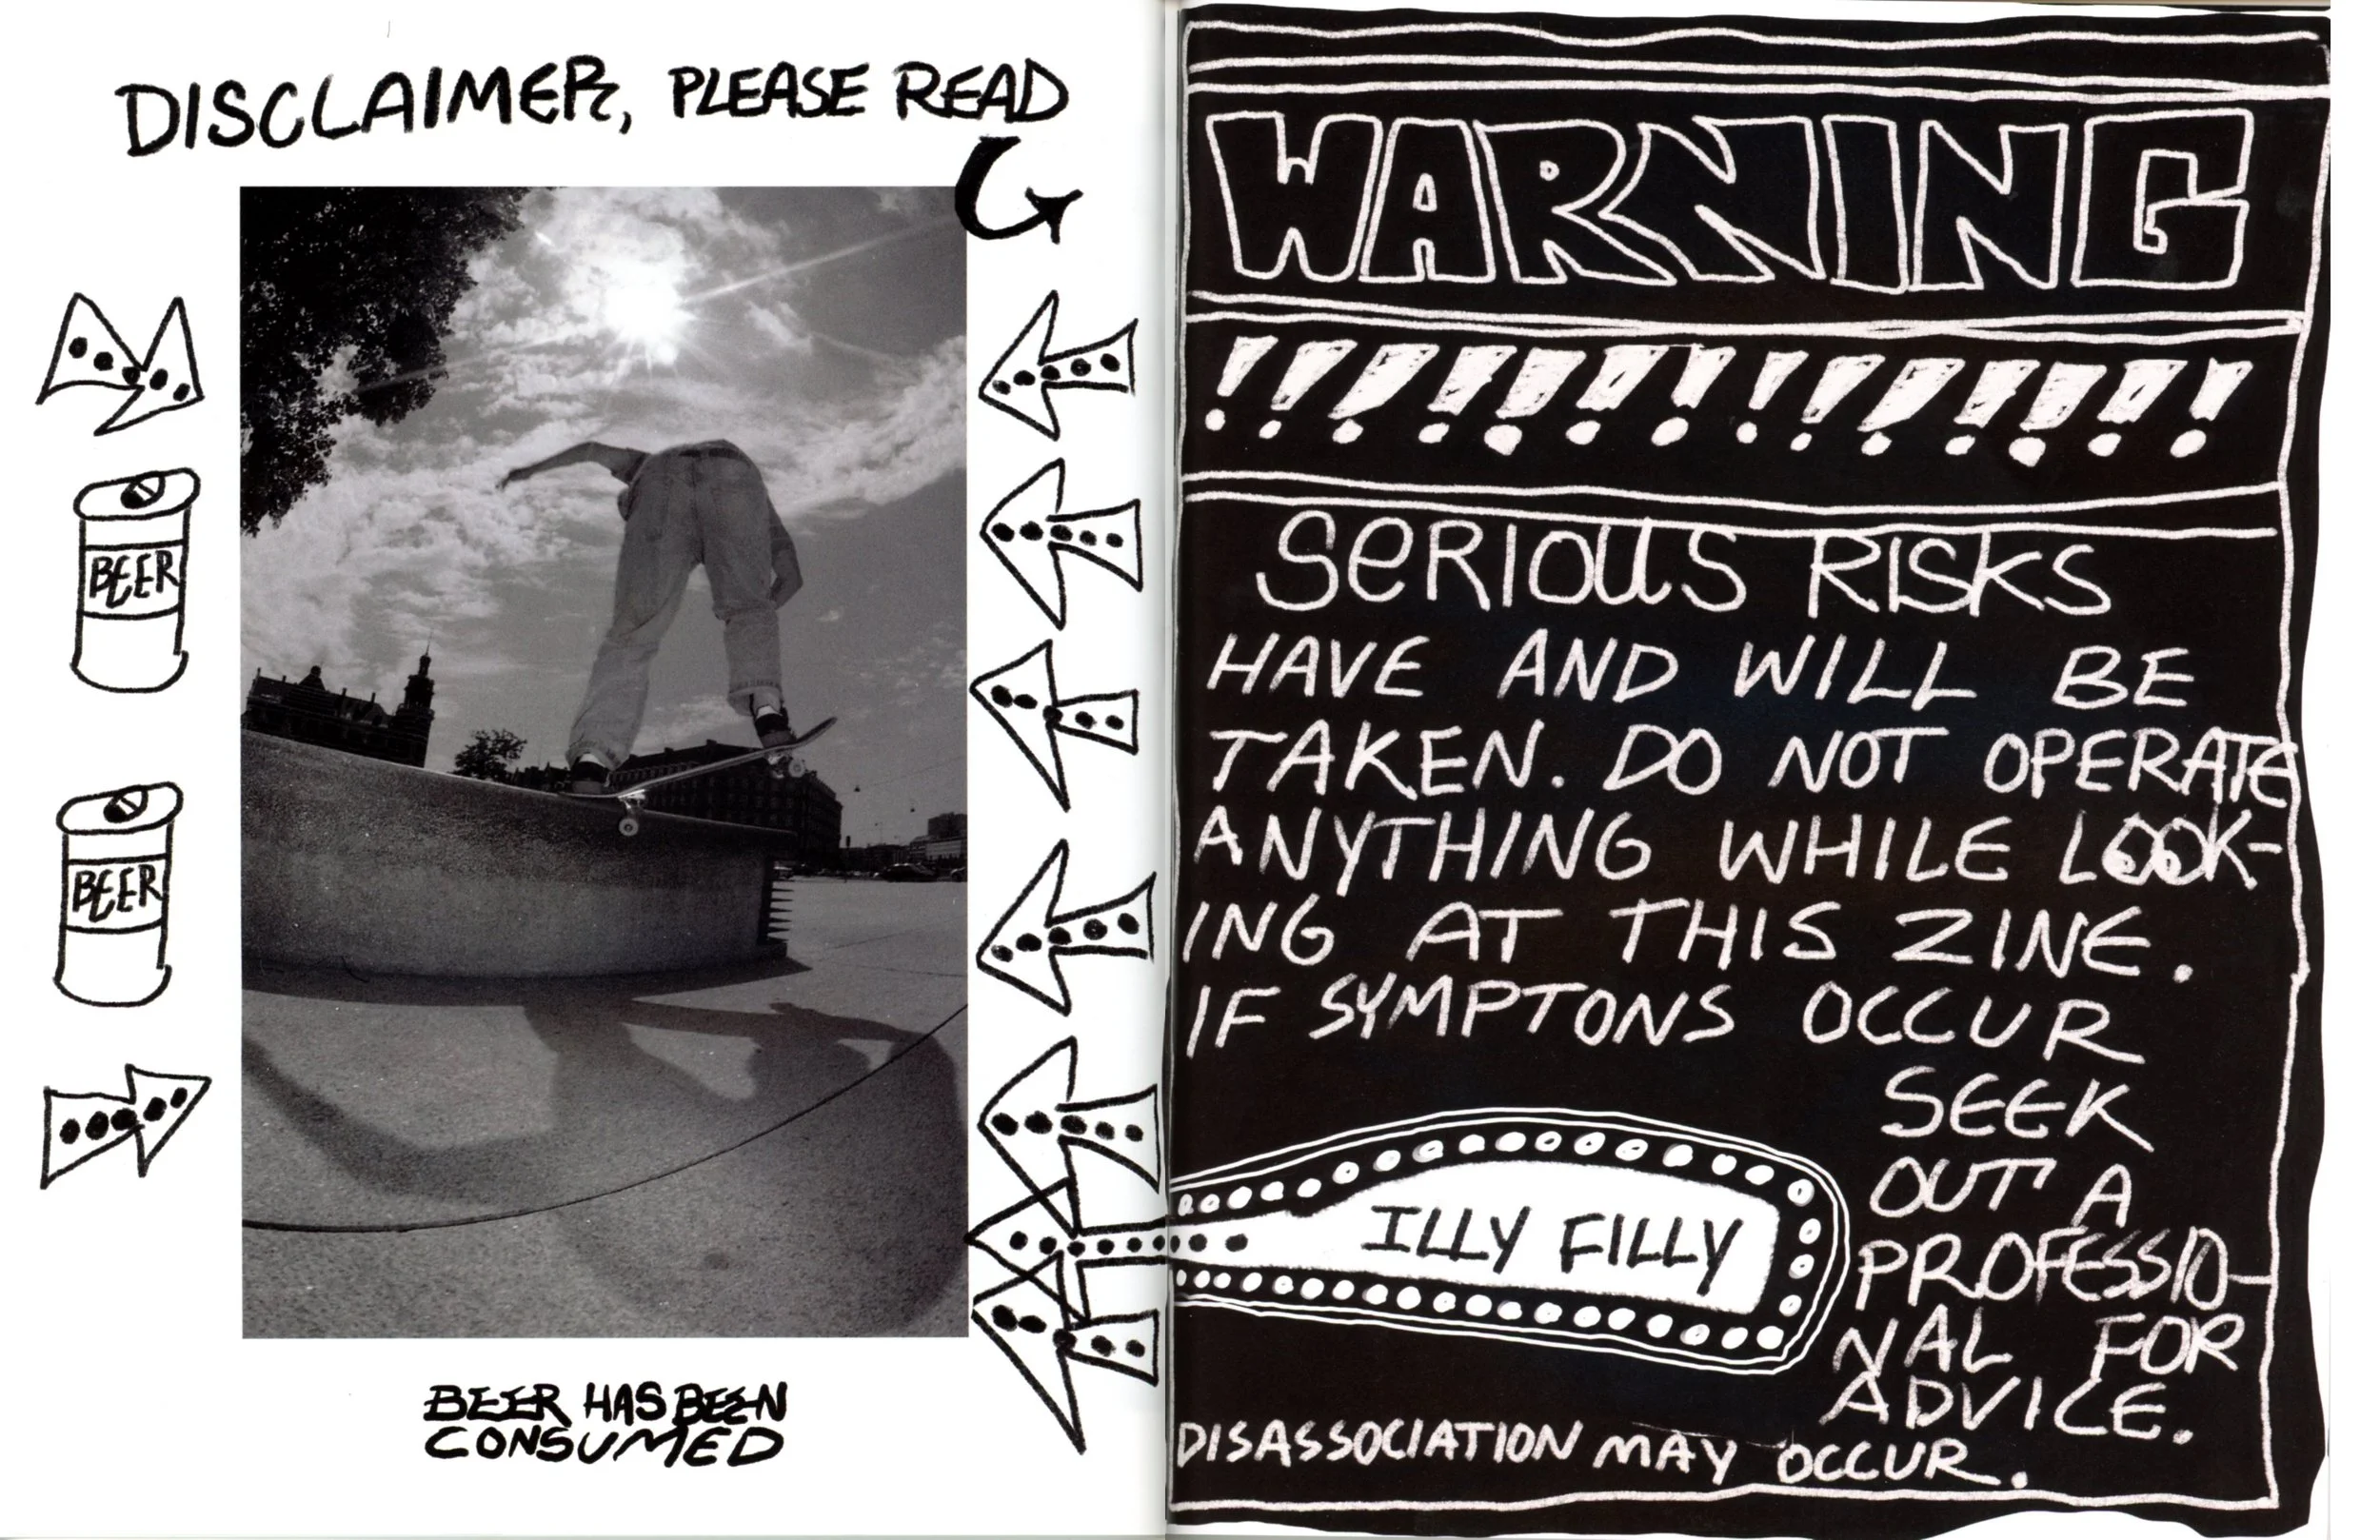 DISCLAIMER, PLEASE READ
BEER
BEER
BEER HAS BEEN
CONSUMED
WARNING
!!!!!!!!!!!!!!!
SERIOUS RISKS
HAVE AND WILL BE
TAKEN. DO NOT OPERATE
ANYTHING WHILE LOOK-
ING AT THIS ZINE.
IF SYMPTONS OCCUR
SEEK
OUT A
PROFESSIO-
NAL FOR
ADVICE.
ILLY FILLY
DISASSOCIATION MAY OCCUR.